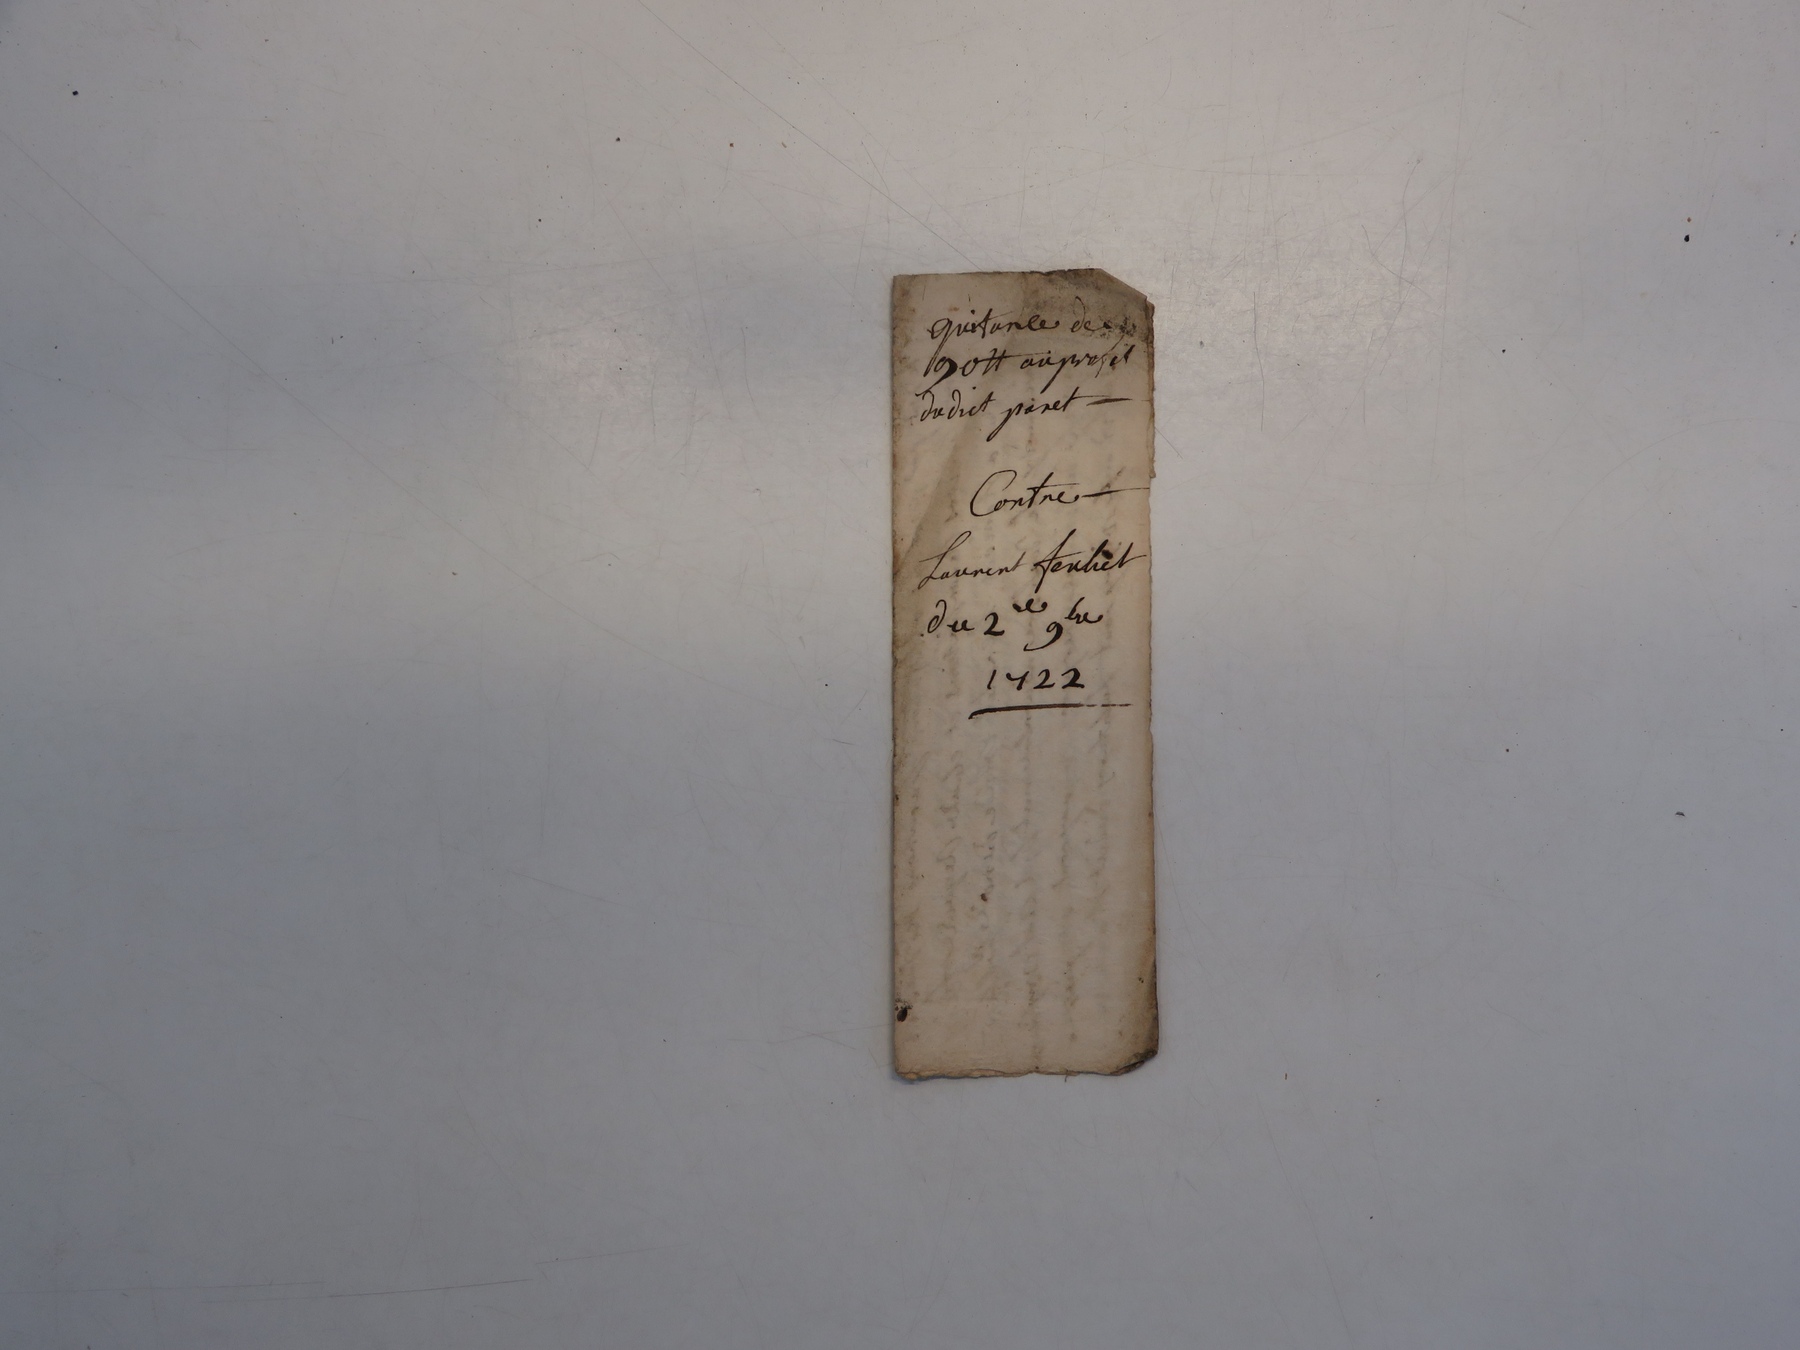 quitance de
90tt au profit
dudict pinet
Contre
Laurent feuliet
du 2re 9bre
1722